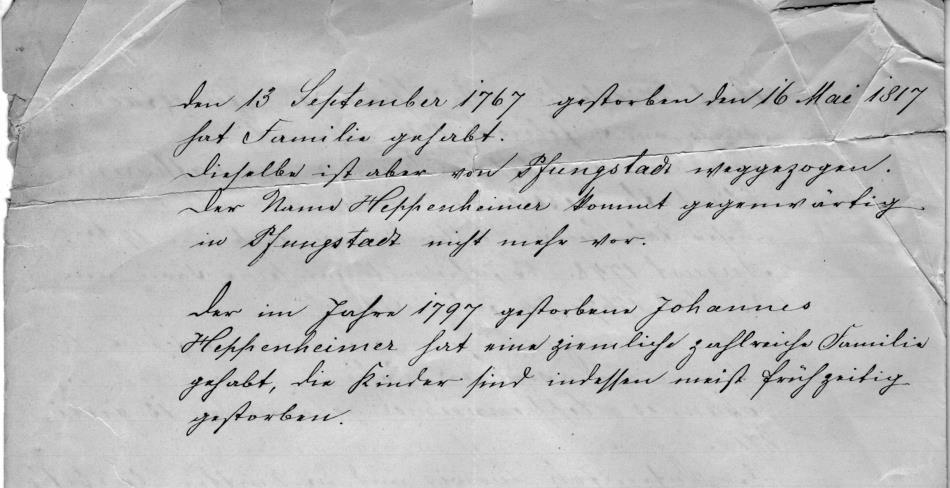 den 13 September 1767 gestorben den 16 Mai 1817
hat Familie gehabt.
Dieselbe ist aber von Pfungstadt weggezogen.
Der Name Heppenheimer kommt gegenwärtig
in Pfungstadt nicht mehr vor.
Der im Jahre 1797 gestorbene Johannes
Heppenheimer hat eine ziemliche zahlreiche Familie
gehabt, die Kinder sind indessen meist frühzeitig
gestorben.